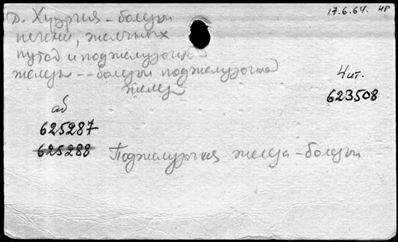 Д. Хирргия - болезни
17.6.64. ИР
печени, желчных
путей и поджелудочной
железы -- болезни поджелудочной
желез
Чит.
623508
аб
625287
625288 Поджелудочная железа - болезни